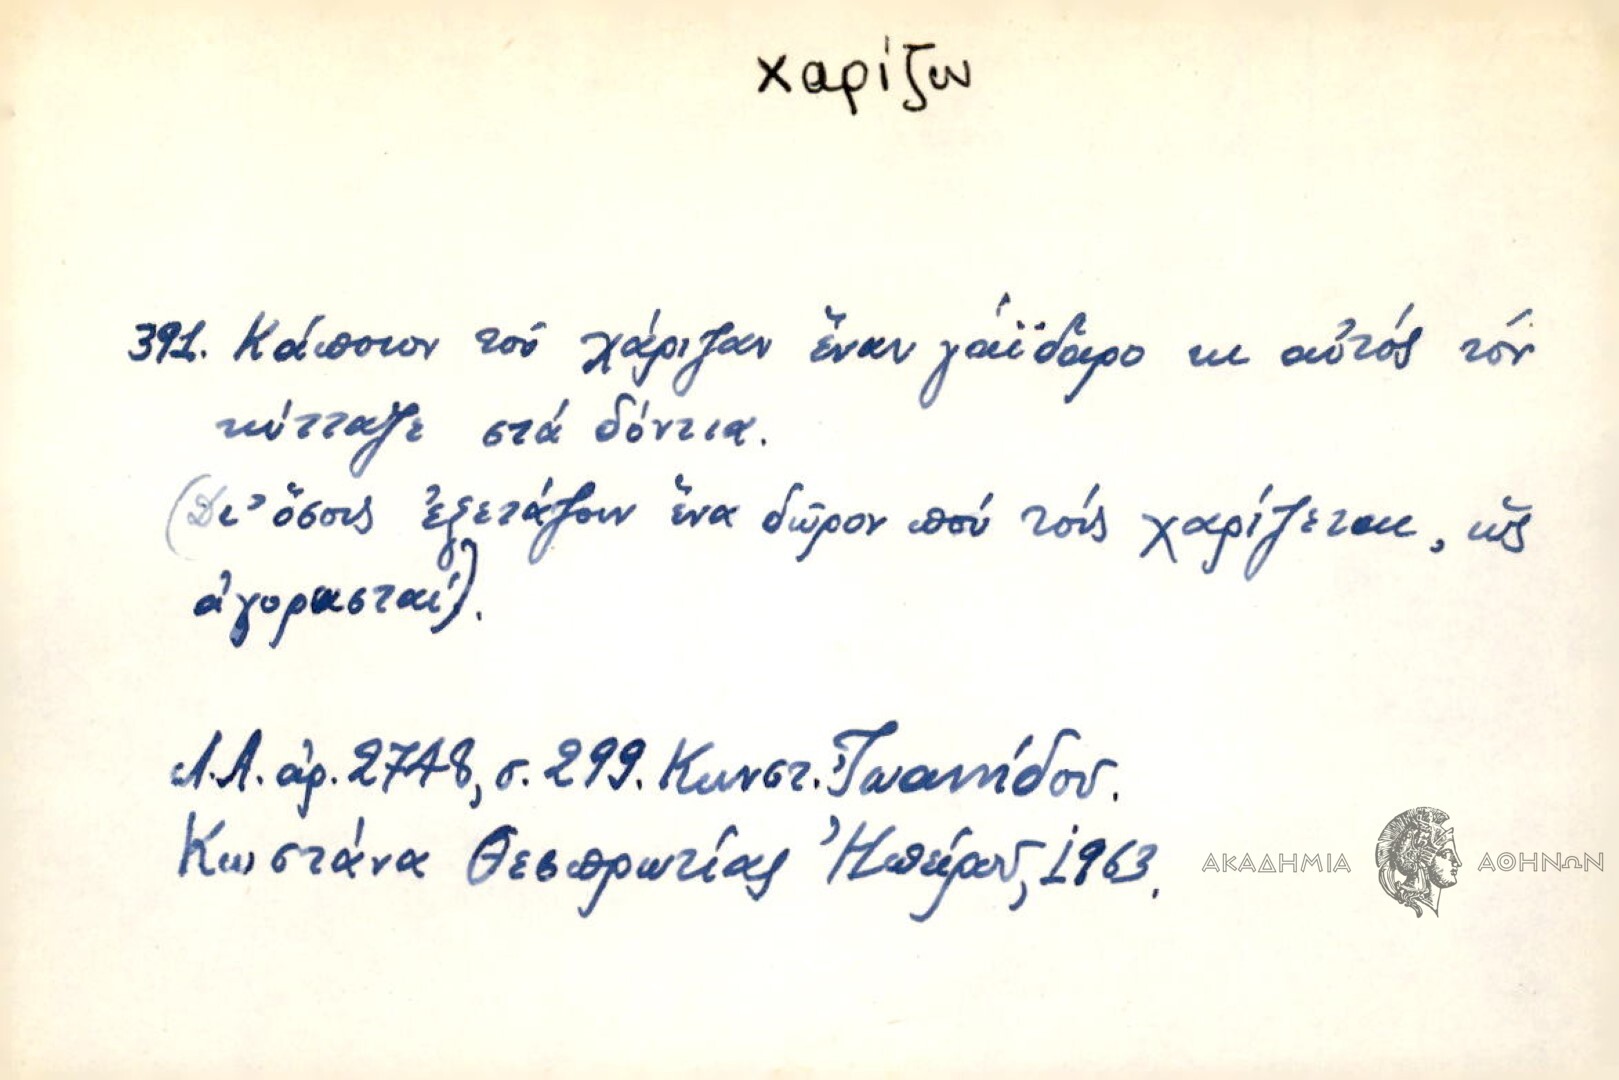 χαρίζω
391. Κάποιον τοῦ χάριζαν ἕναν γάϊδαρο κι αὐτός τόν
κύτταζε στά δόντια.
(Δι' ὅσους ἐξετάζουν ἕνα δῶρον πού τούς χαρίζεται, ὡς
ἀγορασταί).
Λ.Α. ἀρ. 2748, σ. 299. Κωνστ. Ἰωαννίδου.
Κωστάνα Θεσπρωτίας Ἠπείρου, 1963.
ΑΚΑΔΗΜΙΑ ΑΘΗΝΩΝ